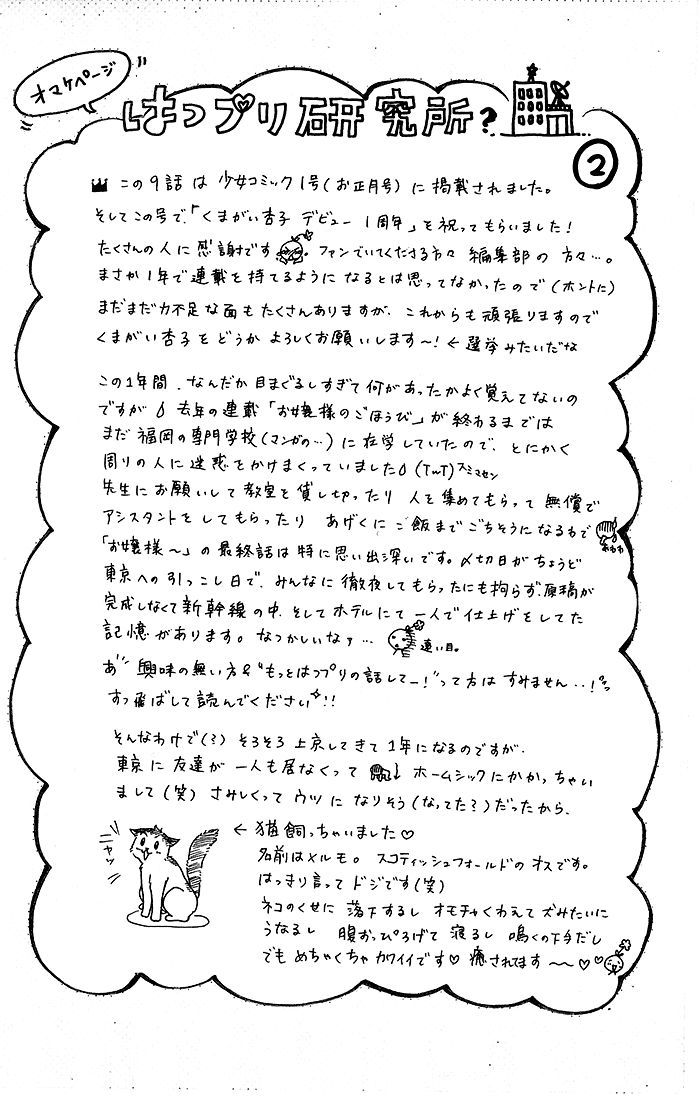 オマケページ
はつプリ研究所?
2
この9話は 少女コミック1号(お正月号)に掲載されました。
そしてこの号で、「くまがい杏子 デビュー 1周年」を祝ってもらいました!
たくさんの人に感謝です ファンでいてくださる方々 編集部の 方々…。
まさか1年で連載を持てるように なるとは思ってなかったので(ホントに)
まだまだ力不足な面もたくさんありますが、これからも頑張りますので
くまがい杏子をどうか よろしくお願いします〜! ← 選挙みたいだな
この1年間、なんだか目まぐるしすぎて何があったかよく覚えてないの
ですが 去年の連載「お嬢様のごほうび」が終わるまでは
まだ 福岡の専門学校(マンガの…)に在学していたので、とにかく
周りの人に迷惑をかけまくっていました(TωT)スミマセン
先生にお願いして教室を貸し切ったり 人を集めてもらって 無償で
アシスタントをしてもらったり あげくに ご飯までごちそうになるわで
おわわ
「お嬢様〜」の最終話は特に思い出深いです。〆切日がちょうど
東京への引っこし日で、みんなに徹夜してもらったにも拘らず、原稿が
完成しなくて新幹線の中、そしてホテルにて一人で仕上げをしてた
記憶があります。なつかしいなァ… 遠い目。
あ" 興味の無い方&"もっとはつプリの話してー!"って方は すみません‥!
すっ飛ばして読んでください!!
そんなわけで(?) そろそろ上京してきて1年になるのですが、
東京に友達が一人も居なくって ホームシックにかかっちゃい
まして(笑) さみしくって ウツに なりそう(なってた?)だったから、
← 猫飼っちゃいました♡
ニャッ
名前はメルモ。スコティッシュフォールドのオスです。
はっきり言って ドジです(笑)
ネコのくせに 落下するし オモチャくわえて犬みたいに
うなるし 腹おっぴろげて 寝るし 鳴くの下手だし
でも めちゃくちゃ カワイイです♡ 癒されてます〜〜♡♡